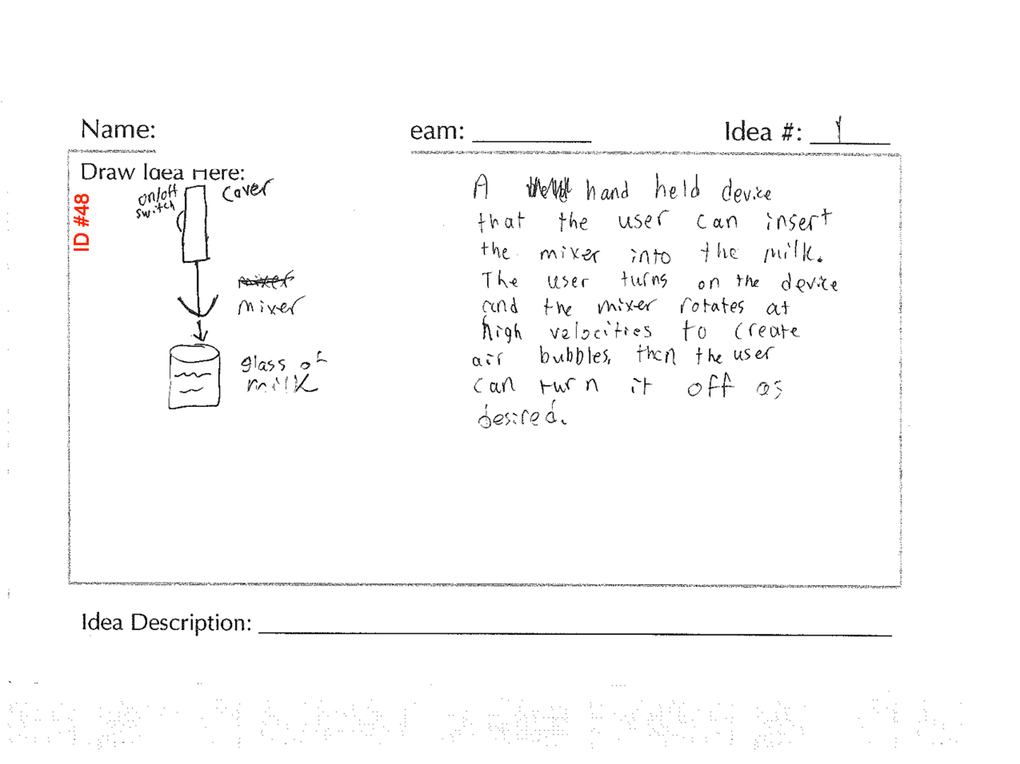 Name:
eam:
Idea #: 1
Draw Idea Here:
ID #48
on/off
switch
cover
mixer
mixer
glass of
milk
A hand held device
that the user can insert
the mixer into the milk.
The user turns on the device
and the mixer rotates at
high velocities to create
air bubbles, then the user
can turn it off as
desired.
Idea Description: